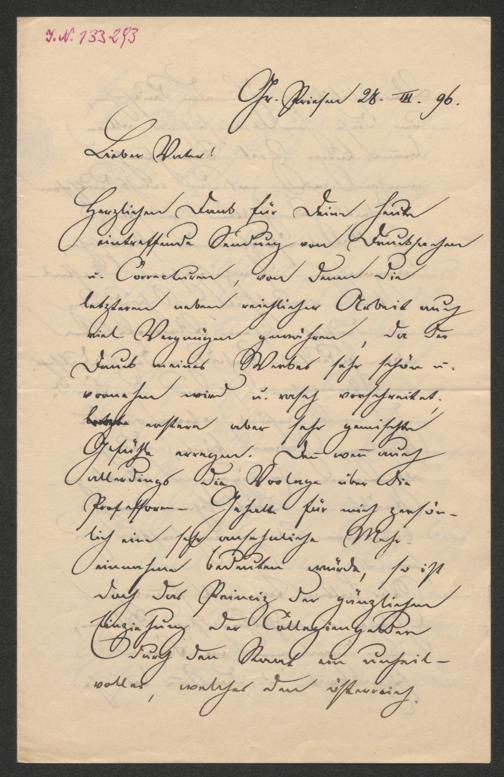 J.N. 133.293
Gr. Priesen 28. III. 96.
Lieber Vater!
Herzlichen Dank für Deine heute
eintreffende Sendung von Drucksachen
u. Correcturen, von denen die
letzteren neben reichlicher Arbeit auch
viel Vergnügen gewähren, da der
Druck meines Werkes sehr schön u.
vornehm wird u. rasch vorschreitet,
erstere aber sehr gemischte
Gefühle erregen. Denn wenn auch
allerdings die Vorlage über die
Professoren-Gehalte für mich persön-
lich eine sehr ansehnliche Mehr-
einnahme bedeuten würde, so ist
doch das Princip der gänzlichen
Einziehung der Collegiengelder
durch den Staat ein unheil-
volles, welches den österreich.